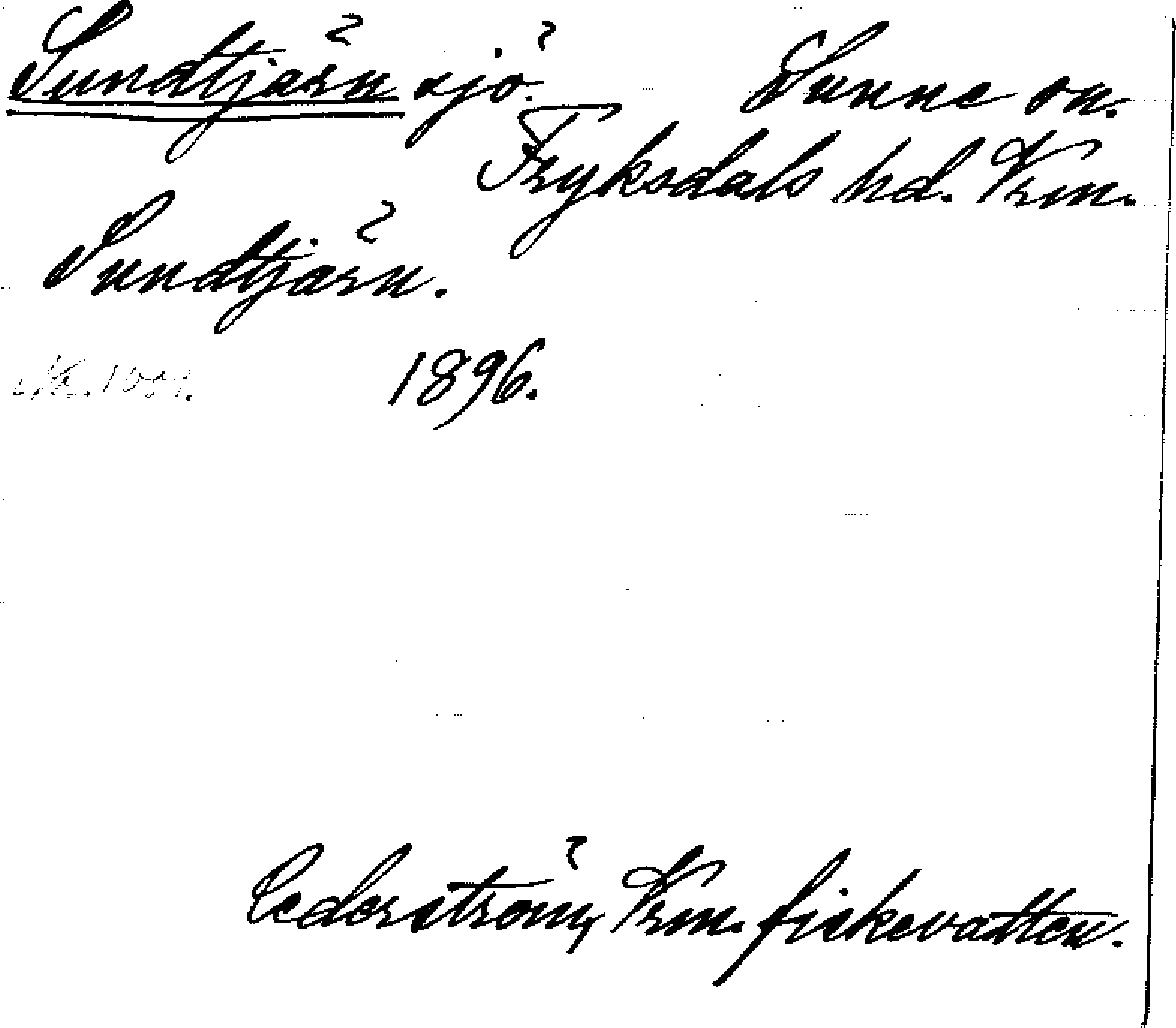 Sundtjärn sjö. Sunne sn.
Fryksdals hd. Vrm.
Sundtjärn.
1896.
Cederström, Vrm. fiskevatten.